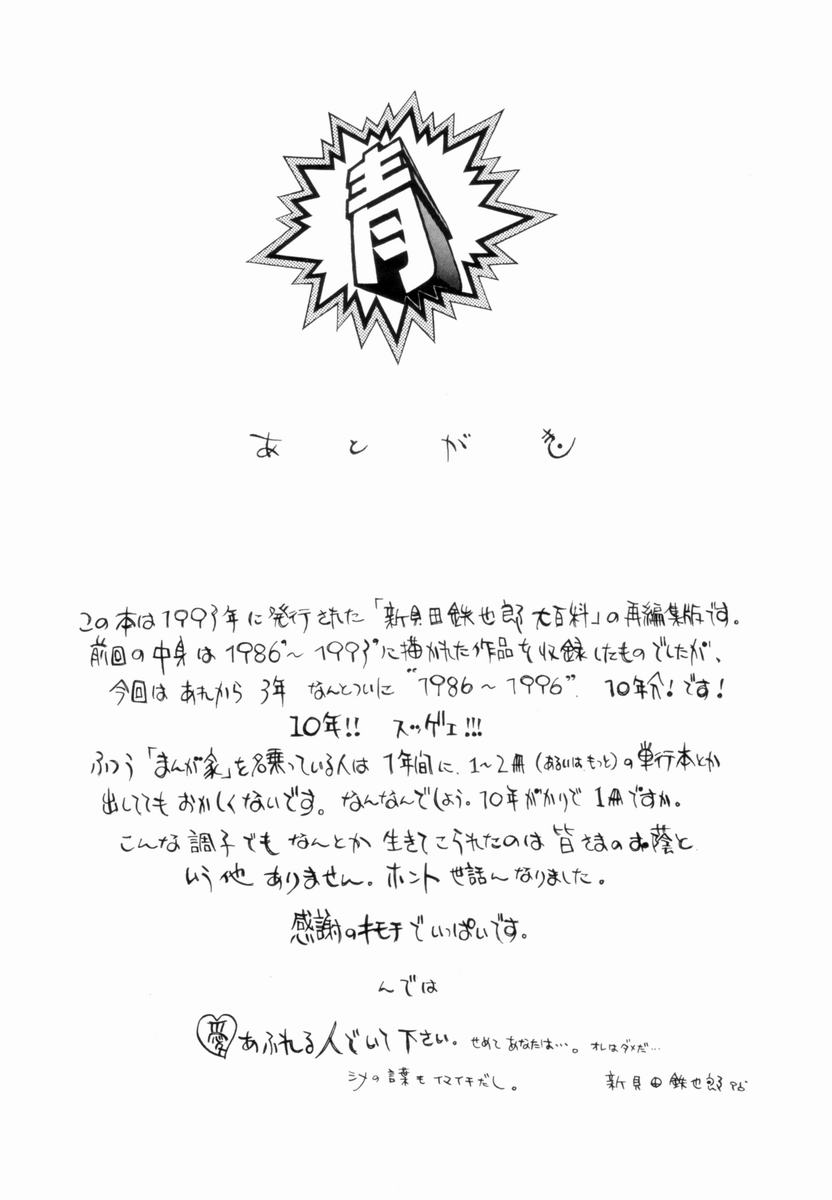 青
あとがき
この本は1993年に発行された「新貝田鉄也郎大百科」の再編集版です。
前回の中身は1986〜1993に描かれた作品を収録したものでしたが、
今回はあれから3年なんとついに"1986〜1996" 10年分!です!
10年!! スッゲェ!!!
ふつう「まんが家」を名乗っている人は1年間に、1〜2冊(あるいはもっと)の単行本とか
出しててもおかしくないです。なんなんでしょう。10年がかりで1冊ですか。
こんな調子でもなんとか生きてこられたのは皆さまのお蔭と
いう他ありません。ホント世話んなりました。
感謝のキモチでいっぱいです。
んでは
愛あふれる人でいて下さい。せめてあなたは…。オレはダメだ…
シメの言葉もイマイチだし。 新貝田鉄也郎